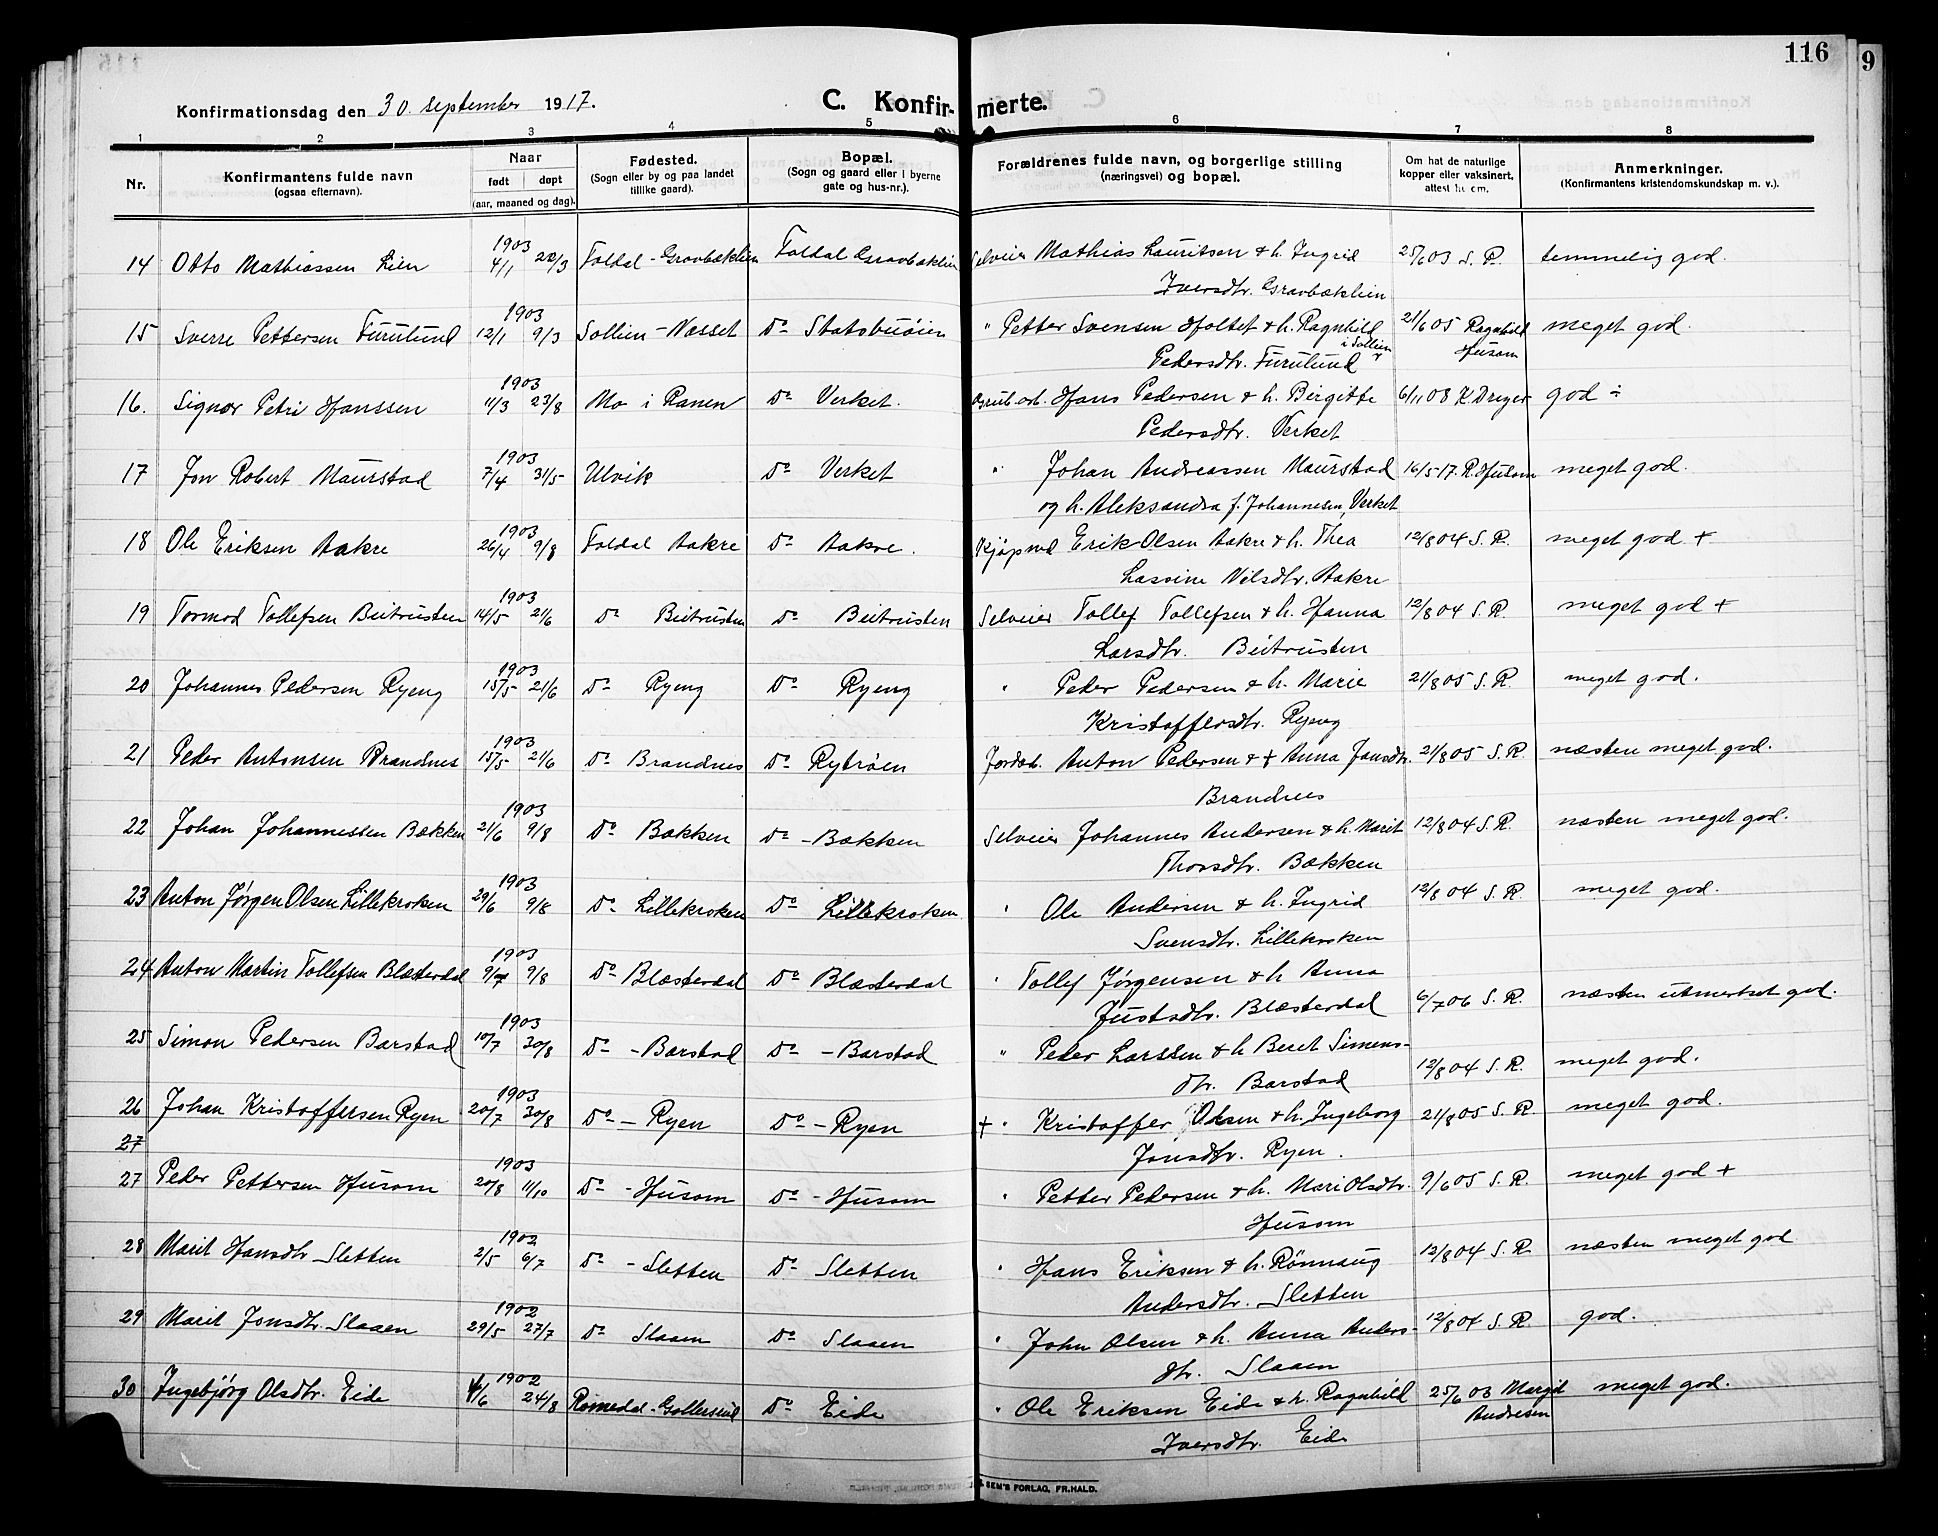 116
9
Konfirmationsdag den 30. september 1917.
C. Konfirmerte.
1 2 3 4 5 6 7 8
Nr.
Konfirmantens fulde navn
(ogsaa efternavn).
Naar
født døpt
(aar, maaned og dag).
Fødested.
(Sogn eller by og paa landet
tillike gaard).
Bopæl.
(Sogn og gaard eller i byerne
gate og hus-nr.).
Forældrenes fulde navn, og borgerlige stilling
(næringsvei) og bopæl.
Om hat de naturlige
kopper eller vaksinert,
attest fra em.
Anmerkninger.
(Konfirmantens kristendomskundskap m. v.).
1903
14 Otto Mathiassen Lien 4/1 22/3 Foldal - Gravbæklien Foldal Gravbæklien Selveier Mathias Lauritsen & h. Ingrid 25/6 03 S. R. temmelig god.
Iversdtr. Gravbæklien
1903
15 Sverre Pettersen Furulund 12/1 9/3 Sollien - Nesset Do Statsbuøien " Petter Svensen Holtet & h. Ragnhild 21/6 05 Ragnhild meget god.
i Sollien Husom
Pedersdtr. Furulund
1903
16. Signar Petri Hanssen 11/3 23/8 Mo i Ranen Do Verket. Grub.arb. Hans Pedersen & h. Birgitte 6/11 08 K. Dreyer god ÷
Pedersdtr. Verket
1903
17 Jon Robert Maurstad 7/4 31/5 Ulvik Do Verket " Johan Andreassen Maurstad 16/5 17. R. Husom meget god.
og h. Aleksandra f. Johannesen, Verket
1903
18 Ole Eriksen Aakre 26/4 9/8 Foldal Aakre Do Aakre. Kjøpmd Erik Olsen Aakre & h. Thea 12/8 04 S. R. meget god +
Lassine Nilsdtr. Aakre
1903
19 Tormod Tollefsen Beitrusten 14/5 21/6 Do Beitrusten Do Beitrusten Selveier Tollef Tollefsen & h. Hanna 12/8 04 S. R. meget god +
Larsdtr. Beitrusten
1903
20 Johannes Pedersen Ryeng 15/5 21/6 Do Ryeng Do Ryeng " Peder Pedersen & h. Marie 21/8 05 S. R. meget god.
Kristoffersdtr. Ryeng
1903
21 Peder Antonsen Brandnes 15/5 21/6 Do Brandnes Do Rytrøen Jordarb. Anton Pedersen & + Anna Jonsdtr. 21/8 05 S. R. næsten meget god.
Brandnes
1903
22 Johan Johannessen Bækken 21/6 9/8 Do Bækken Do - Bækken Selveier Johannes Andersen & h. Marit 12/8 04 S. R. næsten meget god.
Thorsdtr. Bækken
1903
23 Anton Jørgen Olsen Lillekroken 29/6 9/8 Do - Lillekroken Do Lillekroken " Ole Andersen & h. Ingrid 12/8 04 S. R. meget god.
Svensdtr. Lillekroken
1903
24 Anton Martin Tollefsen Blæsterdal 9/7 9/8 Do Blæsterdal Do Blæsterdal " Tollef Jørgensen & h Anna
Justsdtr. Blæsterdal 6/7 06 S. R. næsten utmerket god.
1903
25 Simon Pedersen Barstad 10/7 30/8 Do - Barstad Do - Barstad " Peder Larssen & h Beret Simens-
dtr. Barstad 12/8 04 S. R. meget god.
1903
26 Johan Kristoffersen Ryen 20/7 30/8 Do - Ryen Do - Ryen + " Kristoffer Olsen & h. Ingeborg 21/8 05 S. R. meget god.
27
Jonsdtr. Ryen.
1903
27 Peder Pettersen Husom 20/8 11/10 Do - Husom Do - Husom " Petter Pedersen & h. Mari Olsdtr. 9/6 05 S. R. meget god +
Husom
1902
28 Marit Hansdtr Sletten 2/5 6/7 Do - Sletten Do Sletten " Hans Eriksen & h. Rønnaug 12/8 04 S. R. næsten meget god
Andersdtr. Sletten
1902
29 Marit Jonsdtr. Slaaen 29/5 27/7 Do Slaaen Do Slaaen " John Olsen & h. Anna Anders- 12/8 04 S. R. god.
dtr. Slaaen
1902
30 Ingebjørg Olsdtr. Eide 4/6 24/8 Romedal - Gollersrud Do Eide " Ole Eriksen Eide & h. Ragnhild 25/6 03 Margit meget god.
Andresen
Iversdtr. Eide
SEM'S FORLAG, FR.HALD.